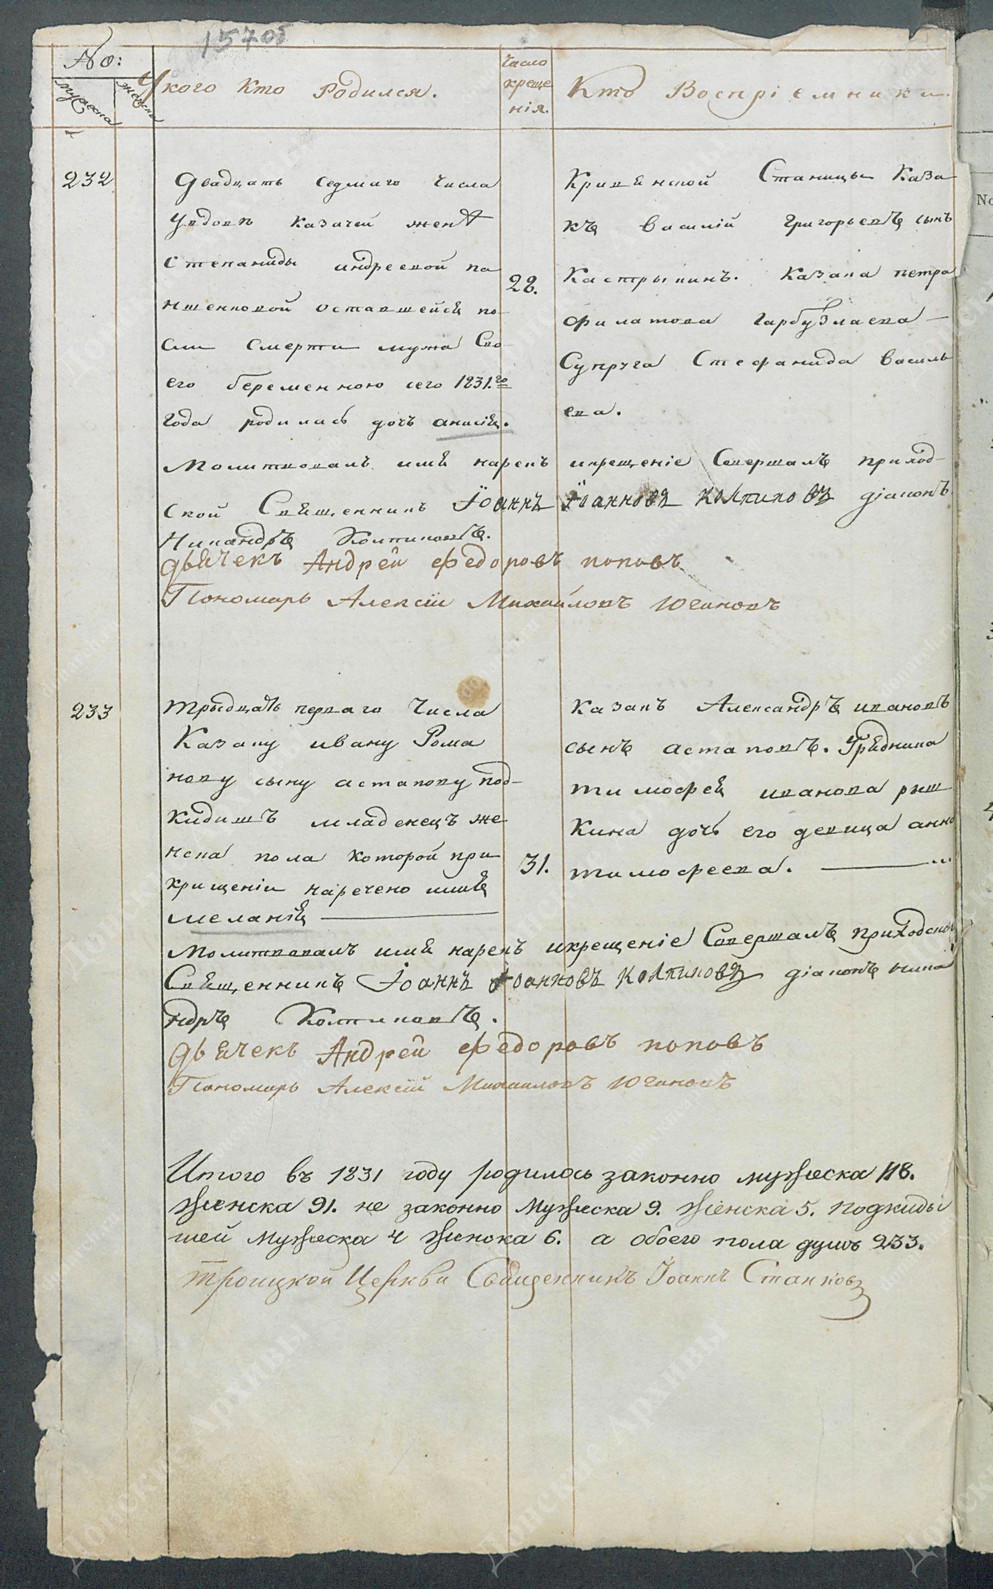 1570б
№:
мужеска
женска
У кого кто Родился.
Число креще нія.
Кто Воспріемники.
232
Двадцать седмаго числа
Увдовъ казачей жены
Степаниды андреевой па
ншенковой оставшейся по
сли смерти мужа Сво
его беременною сего 1831.го
года родилась дочь анисія.
28.
Кривенской Станицы Каза
къ василій григорьевъ сынъ
Кастрыкинъ. Казака петра
Филатова Гарбузлаева
Супруга Стефанида василь
ева.
Молитвовалъ имя нарекъ икрещеніе Совершалъ приход
ской Священникъ Іоаннъ Іоанновъ Колпиковъ діаконъ
Никандръ Колпиковъ.
Дьячекъ Андрей Федоровъ поповъ
Пономарь Алексій Михайловъ Югановъ
233
Трыдцать перваго Числа
Казаку ивану Рома
нову сыну астапову под
кидишъ младенецъ же
нска пола которой при
крищеніи наречено имя
меланія
31.
Казакъ Александръ ивановъ
сынъ астаповъ. Урядника
тимофея иванова рыш
кина дочь его девица анна
тимофеева.
Молитвовалъ имя нарекъ икрещеніе Совершалъ приходской
Священникъ Іоаннъ Іоанновъ Колпиковъ діаконъ Ника
ндръ Колпиковъ.
Дьячекъ Андрей Федоровъ поповъ
Пономарь Алексій Михаиловъ Югановъ
Итого въ 1831 году родилось законно мужеска 118.
женска 91. не законно Мужеска 9. женска 5. подкиды
шей Мужеска 4 женска 6. а обоего пола душъ 233.
Троицкой Церкви Священникъ Іоаннъ Станковъ